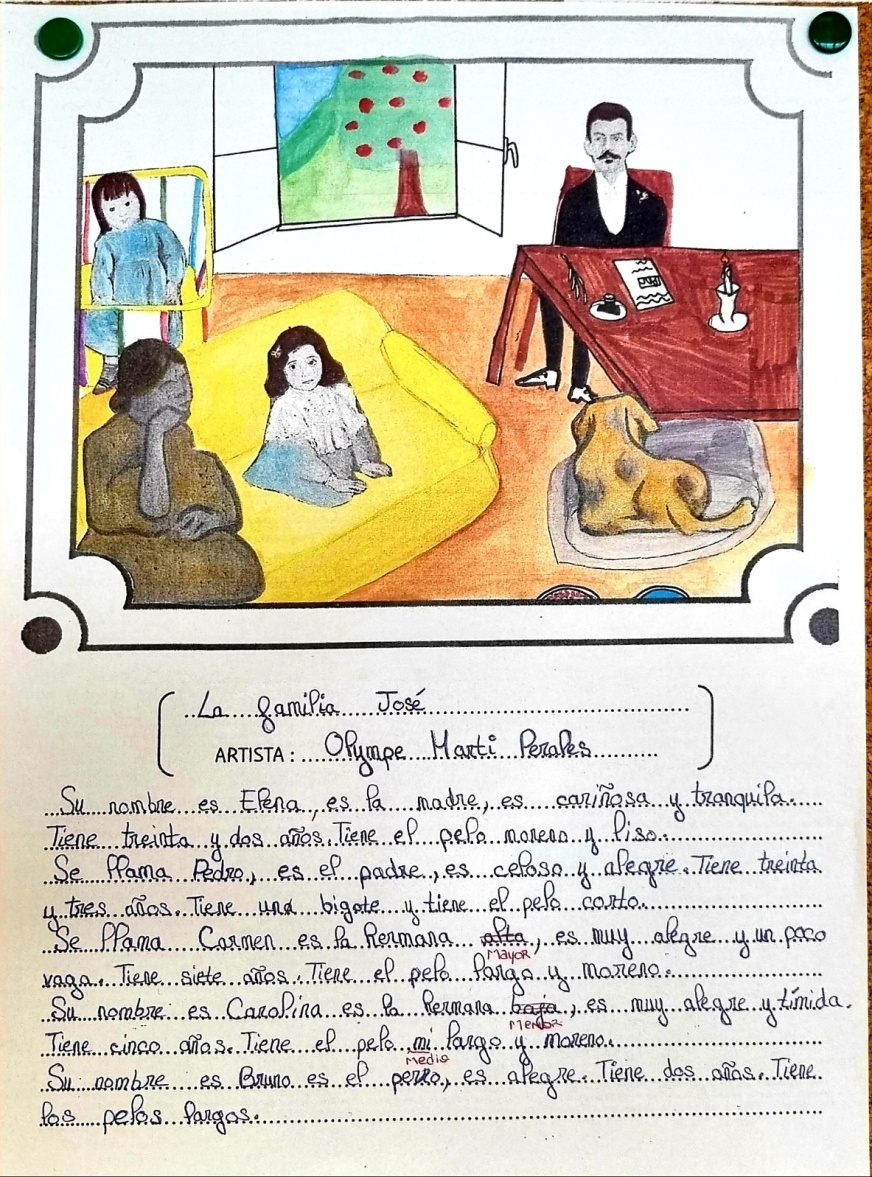 La familia José
ARTISTA : Olympe Marti Perales
Su nombre es Elena, es la madre, es cariñosa y tranquila.
Tiene treinta y dos años. Tiene el pelo moreno y liso.
Se llama Pedro, es el padre, es celoso y alegre. Tiene treinta
y tres años. Tiene una bigote y tiene el pelo corto.
Se llama Carmen es la hermana alta, es muy alegre y un poco
Mayor
vaga. Tiene siete años. Tiene el pelo largo y moreno.
Su nombre es Carolina es la hermana baja, es muy alegre y tímida.
Menor
Tiene cinco años. Tiene el pelo mi largo y moreno.
Medio
Su nombre es Bruno es el perro, es alegre. Tiene dos años. Tiene
los pelos largos.